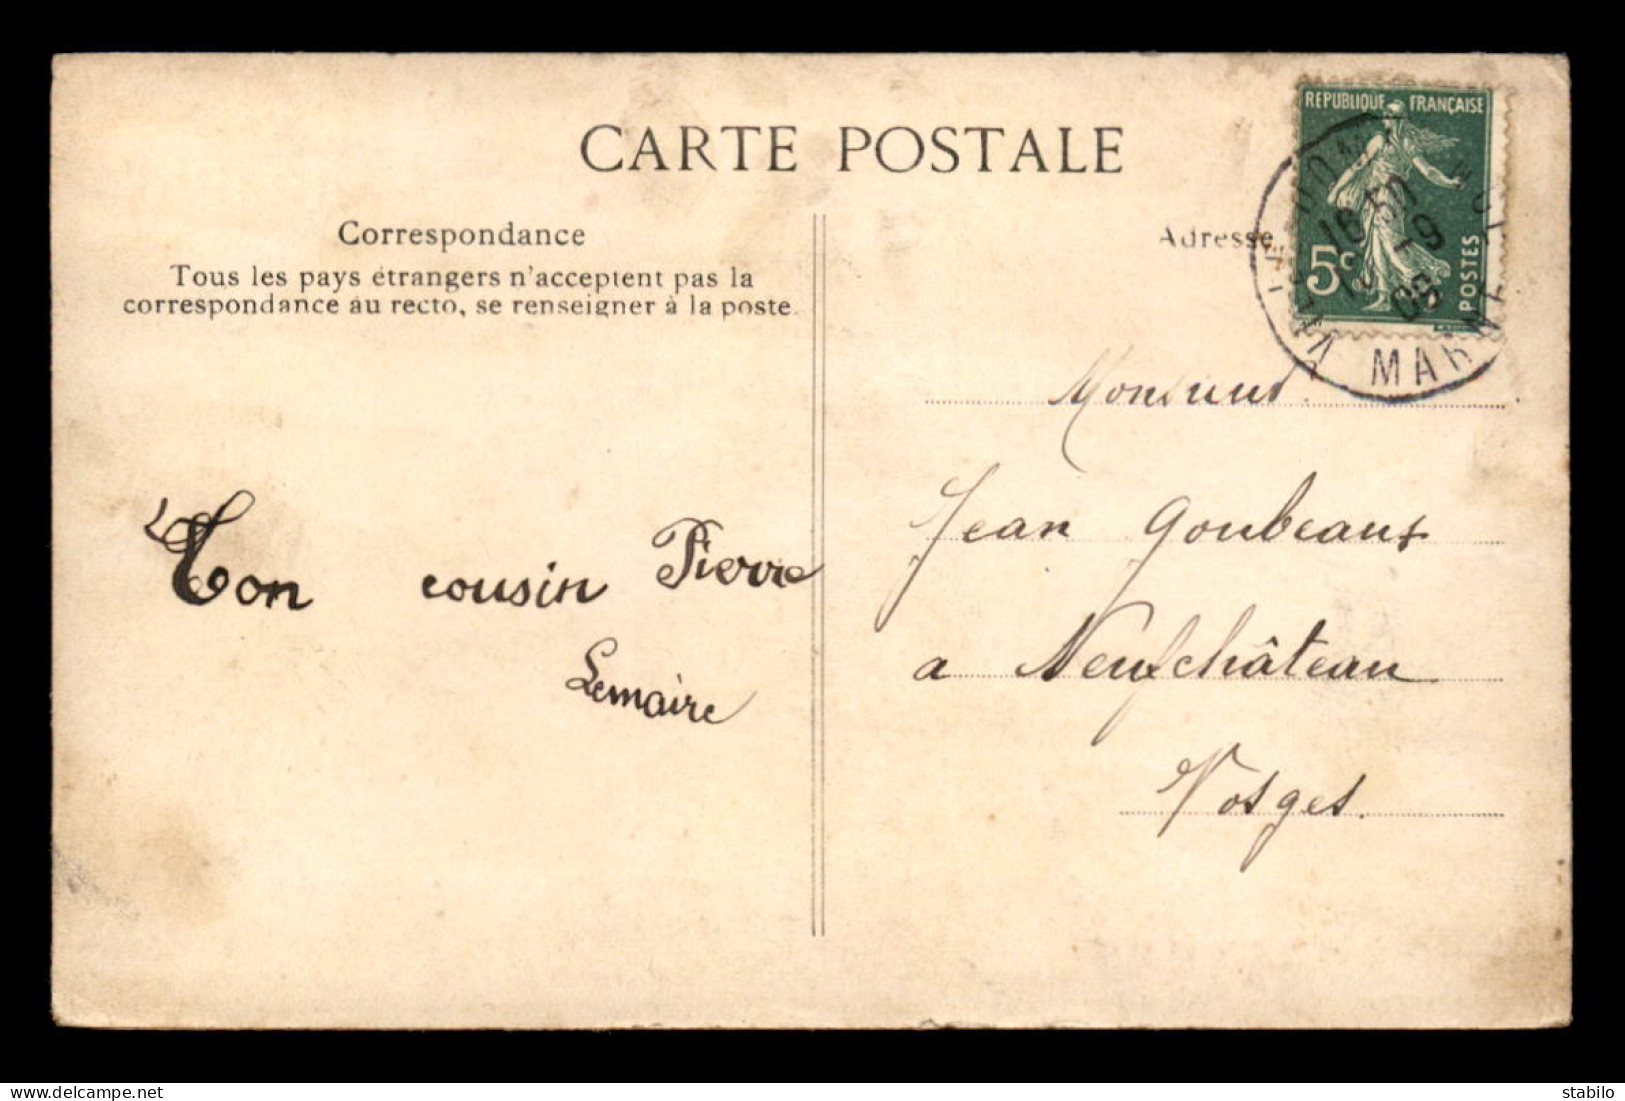 CARTE POSTALE
Correspondance
Tous les pays étrangers n'acceptent pas la
correspondance au recto, se renseigner à la poste.
Ton cousin Pierre
Lemaire
Adresse
REPUBLIQUE FRANÇAISE
5c
POSTES
16 50
-9
MARNE
Monsieur
Jean Goubeaux
a Neufchâteau
Vosges.
delcampe.net
stabilo